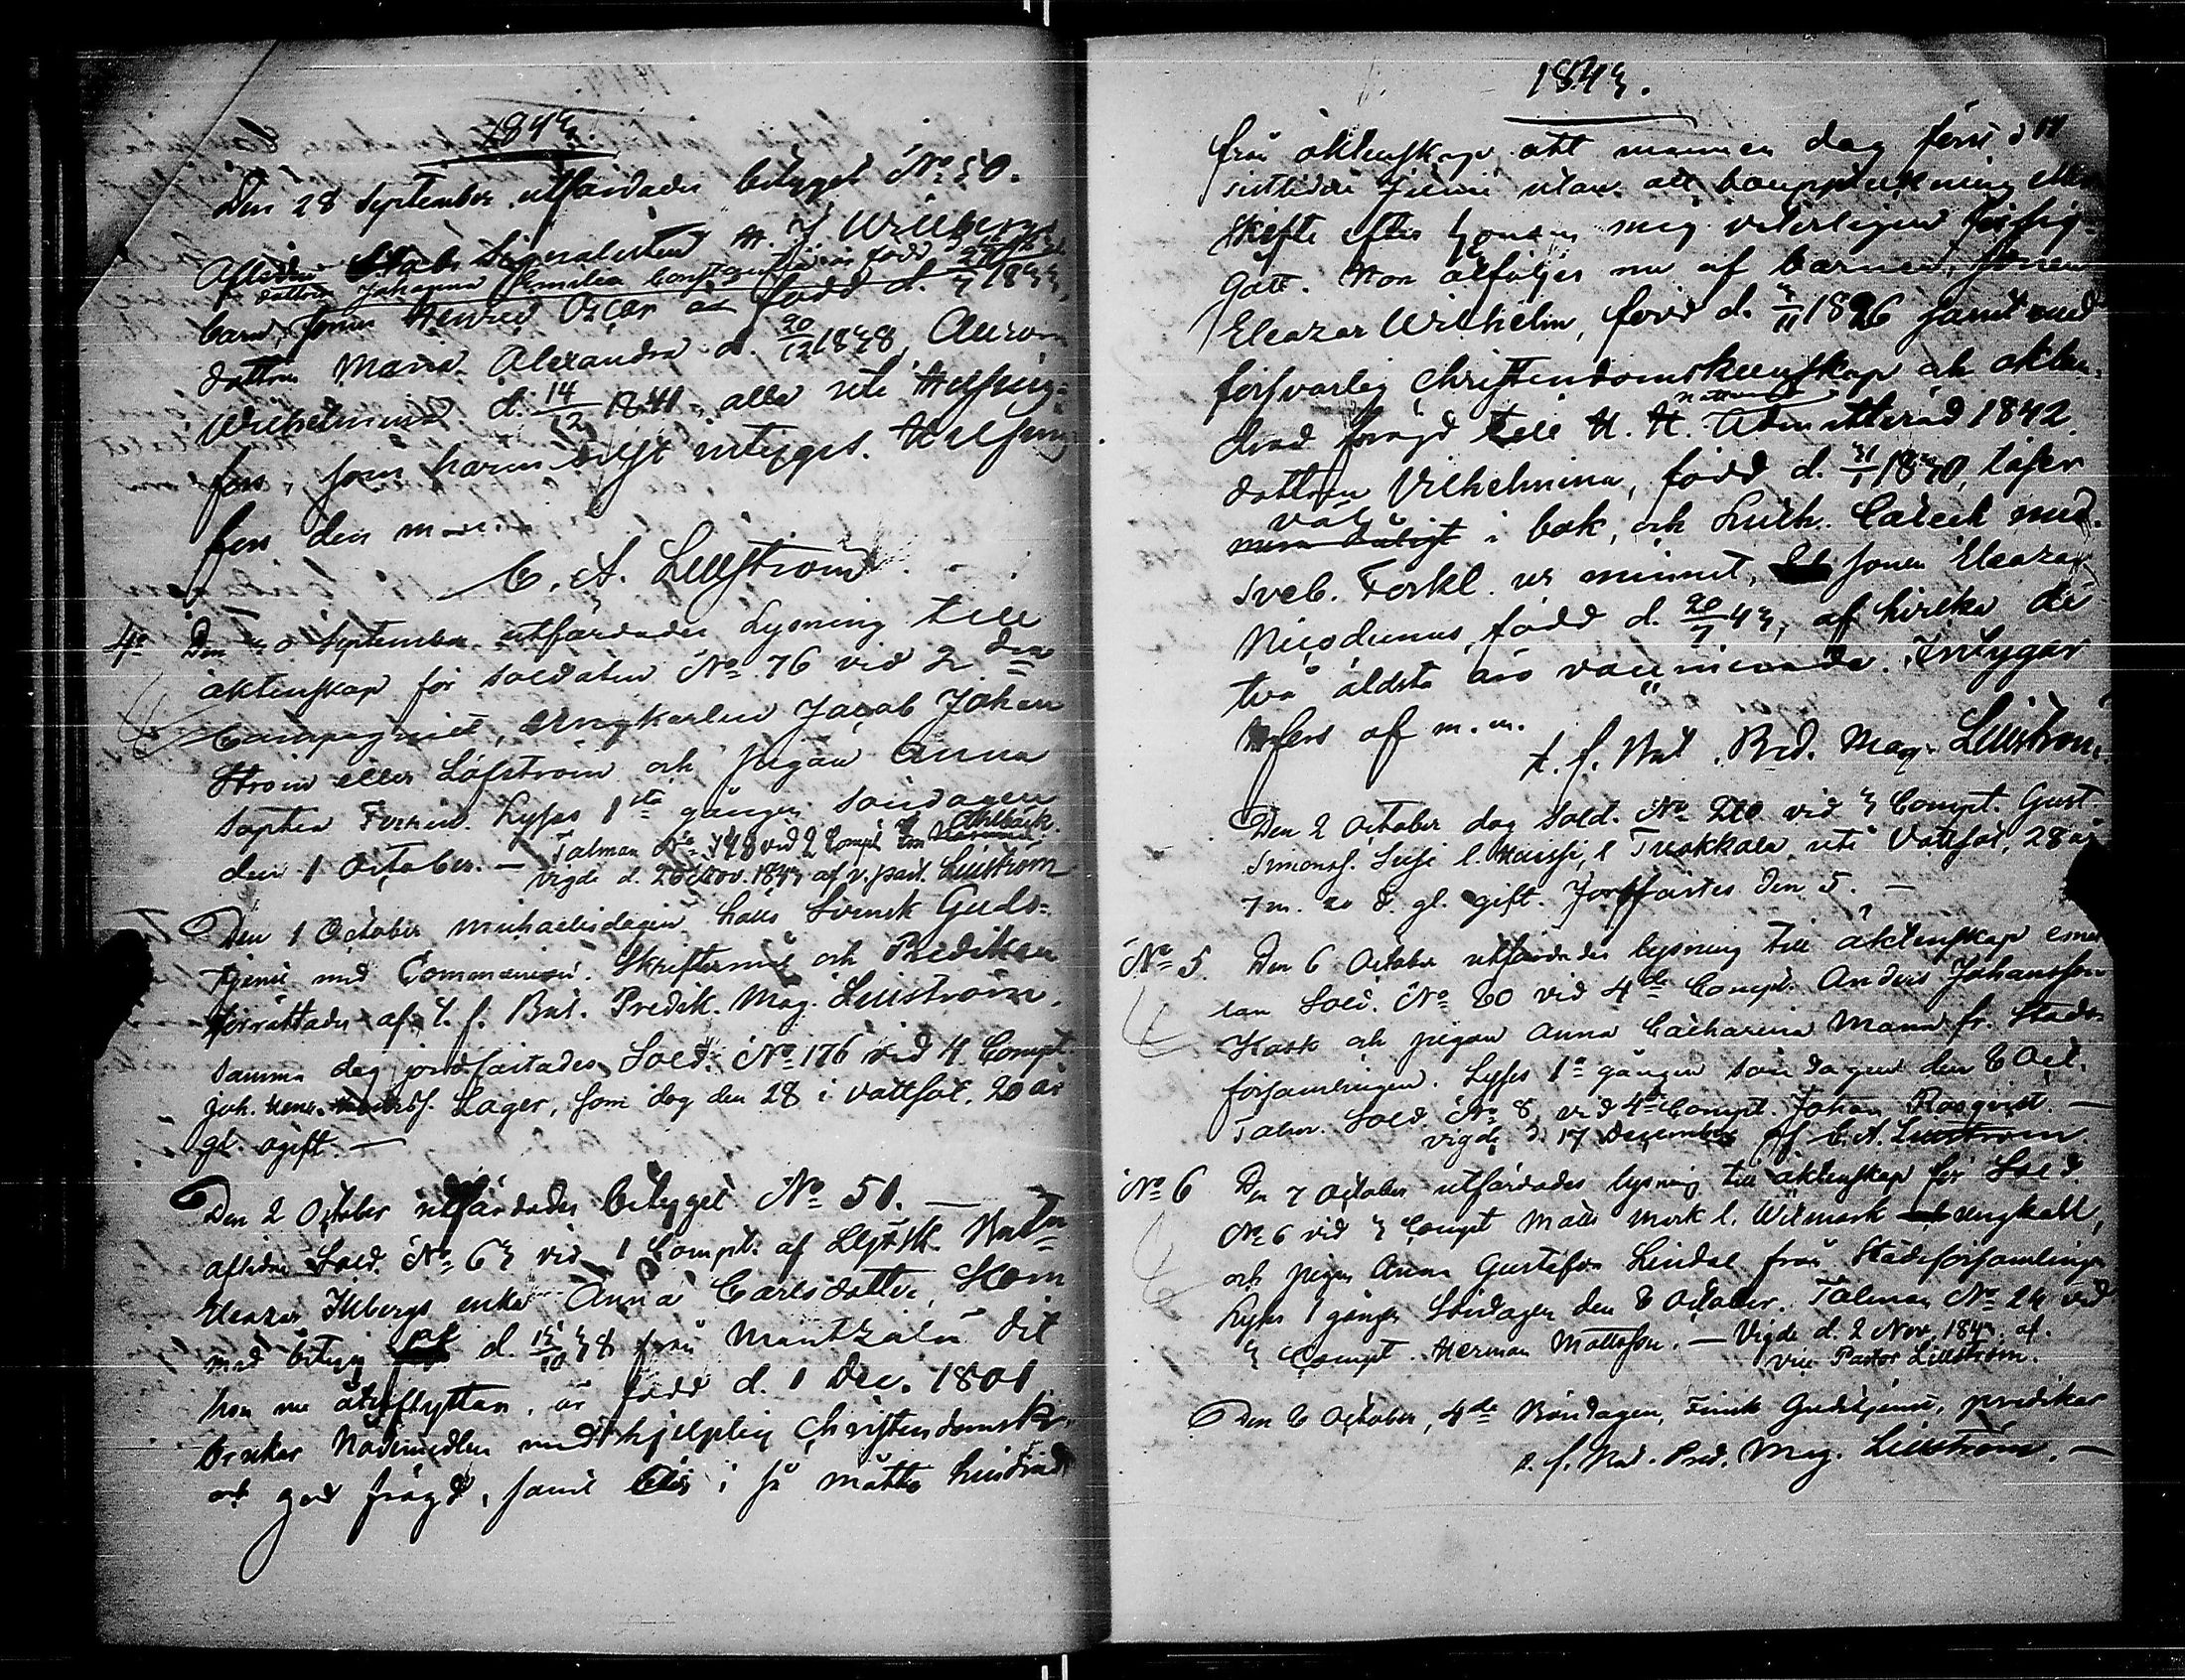 1843.
Den 28 September utfärdades betyget No 50.
Aflidne Stabs Signalisten H. J. Willbergs
dottren Johanna Emilia Constantia är född d.
barn, sonen Henric Oscar är född d. 1833,
dottren Maria Alexandra d. 20/12 1838, Aurora
Wilhelmina d. 14/12 1841, alla uti Helsing-
fors, som härmedelst intygas. Helsing
fors den
C. A. Lillström
4o Den 30 September utfärdades Lysning till
äktenskap för soldaten No 76 vid 2 dra
Compagniet, Ungkarlen Jacob Johan
Ström eller Löfström och pigan Anna
Sophia. Lyses 1sta gången söndagen
den 1 October. — Talman No 148 vid 2 Comp. Ahlbäck.
Vigde d. Nov. 1843 af v. past. Lillström
Den 1 October Michaelisdagen hålls Svensk Guds-
tjenst med Communion. Skriftermål och Predikan
förrättades af t. f. Bat. Predik. Mag. Lillström.
Samma dag jordfästades Sold. No 176 vid 4 Compt.
Joh. Henr. Lager, som dog den 28 i vattsot, 20 år
gl. ogift. —
Den 2 October utfärdades betyget No 51. —
aflidne Sold. No 63 vid 1 Compt. af
Eleazar Illbergs enka Anna Carlsdotter, Kom
med betyg af d. 38 från Mäntzälä dit
hon nu återflyttar, är född d. 1 Dec. 1801
brukar Nådemedlen med hjelplig Christendomsk.
och god frägd, samt ledig i så måtto hindrad
1843.
från äktenskap att mannen dog förs d 11
sistlidne Junii utan att bouppteckning eller
skifte efter honom mig veterligen försig-
gått. Hon åtföljes nu af barnen, sonen
Eleazar Wilhelm, född d. 3/11 1826 samt med
försvarlig Christendomskunskap och oklan-
drad frägd till H. H. Nattvard admitterad 1842.
dottren Vilhelmina, född d. 31/1 1830, läser
väl
i bok, och Luth. Catech. med
Sveb. Förkl. ur minnet, sonen Eleazar
Nicodemus, född d. 20/7 43, af hvilka de
två äldsta äro vaccinerade. Intygar
H:fors af m. m.
t. f. Bat. Pred. Mag. Lillström.
Den 2 October dog Sold. No 210 vid 3 Compt. Gust.
Simonss. Susi l. Haissi, l Tuokkola uti Vattsot, 28 år
7 m. 20 d. gl. gift. Jordfästes den 5. —
No 5. Den 6 October utfärdades lysning till äktenskap emel
lan Sold. No 80 vid 4de Compt. Anders Johansson
Hask och pigan Anna Catharina Mann fr. Stads-
församlingen. Lyses 1a gången söndagen den 8 Oct.
Talm. Sold. No 8, vid 4de Compt. Johan Rosqvist. —
vigde d. 17 December af C. A. Lillström.
No 6 Den 7 October utfärdades lysning till äktenskap för Sold.
No 6 vid 3 Compt Matts Mark l. Wikmark ungkarl,
och pigan Anna Gustafva Lindal från Stadsförsamlingen
Lyses 1 gången Söndagen den 8 October. Talman No 24 vid
3 Compt. Herman Mattsson. — Vigde d. 2 Nov. 1843. af.
vice Pastor Lillström.
Den 8 October, 4de Böndagen, Finsk Gudstjenst, predikar
t. f. Bat. Pred. Mag. Lillström. —